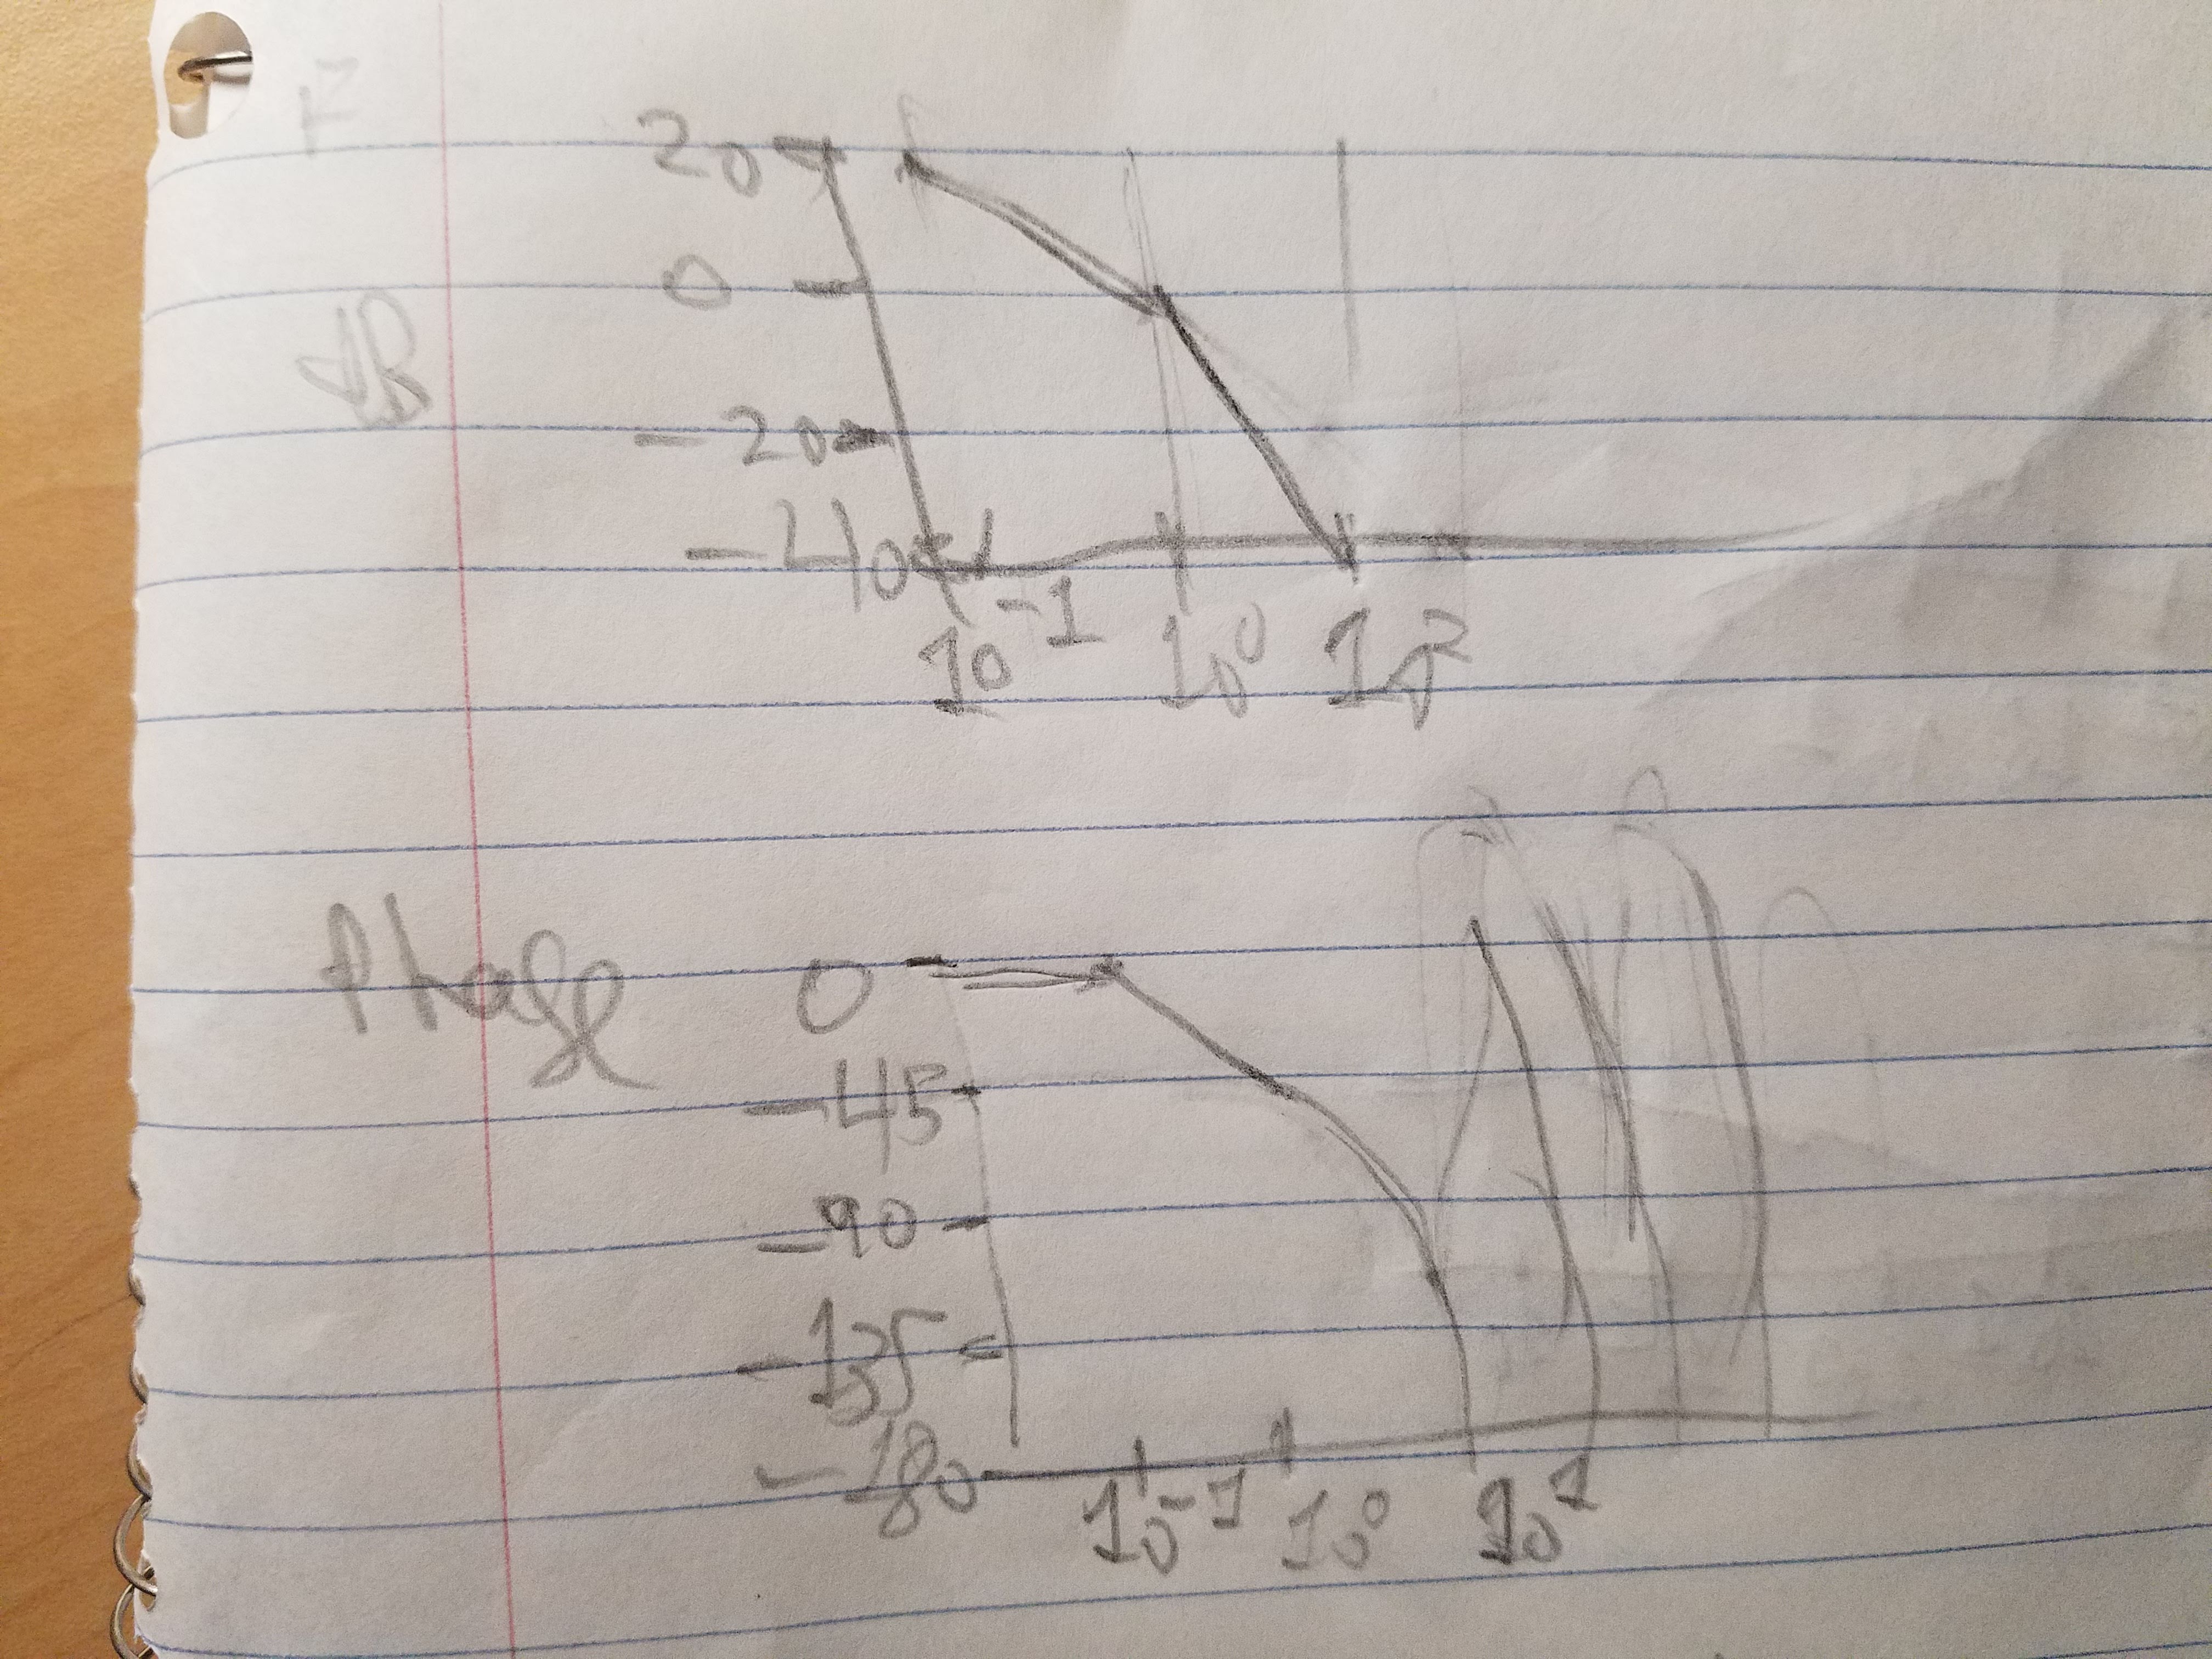 dB
20
0
-20
-40
10-1
100
Phase
0
-45
-90
-135
-180
10-1
100